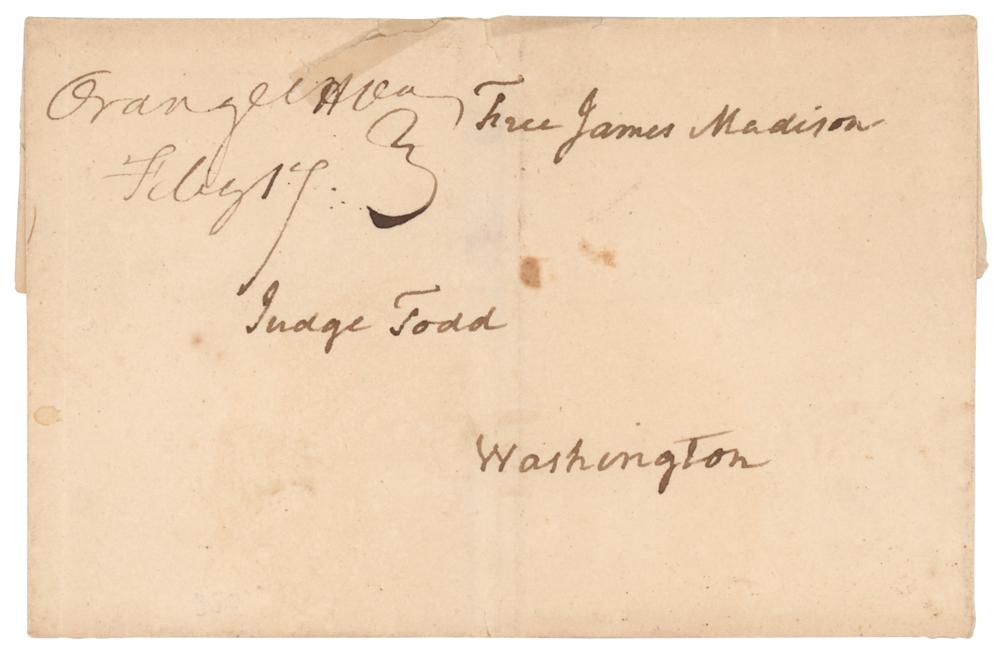 Orange CH Va
Feby 17. 3
Free James Madison
Judge Todd
Washington